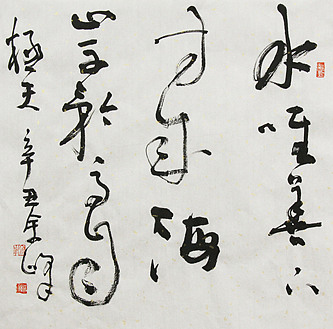 水唯善下
方成海
山不矜高自
極天
辛丑余峰